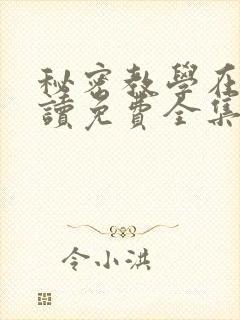 秘密教學在
讀免費全集
令小洪